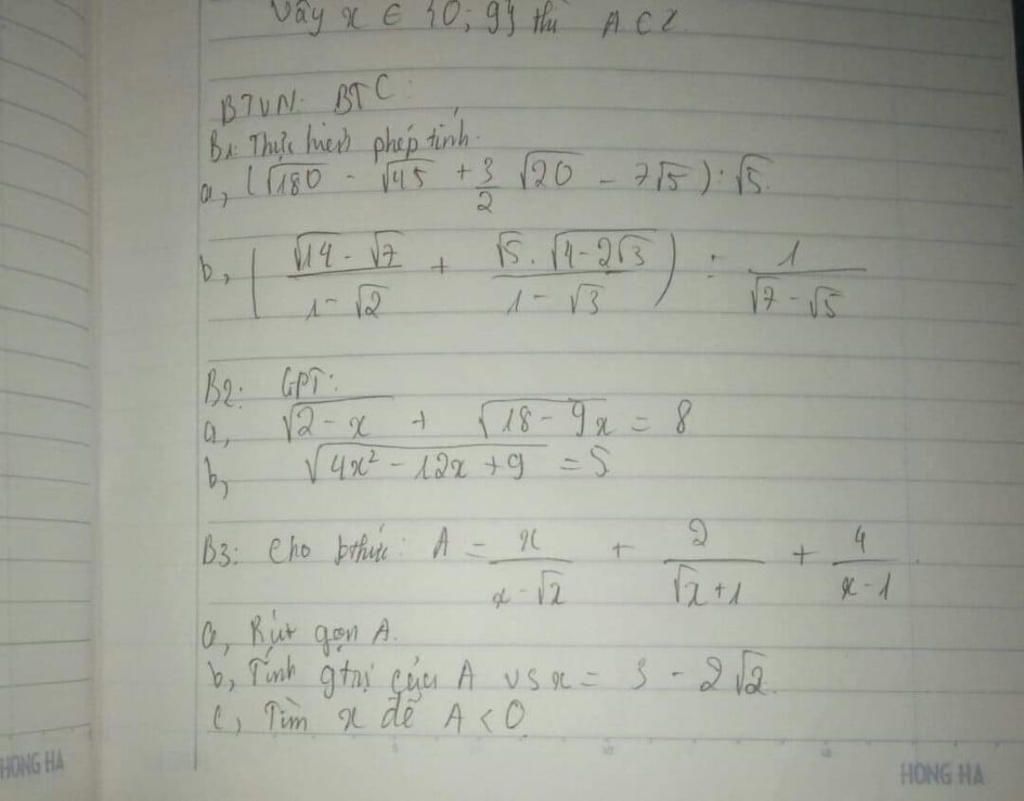 Vậy x ∈ {0; 9} thì A ∈ Z
BTVN: BTC:
B1: Thực hiện phép tính.
a, (√180 - √45 + 3/2 √20 - 7√5) : √5.
b, ( (√14 - √7)/(1 - √2) + (√5 . √(4 - 2√3))/(1 - √3) ) : 1/(√7 - √5)
B2: GPT:
a, √(2 - x) + √(18 - 9x) = 8
b, √(4x² - 12x + 9) = 5
B3: Cho bthức: A = x/(x - √x) + 2/(√x + 1) + 4/(x - 1).
a, Rút gọn A.
b, Tính gtrị của A vs x = 3 - 2√2.
c, Tìm x để A < 0
HONG HA
HONG HA